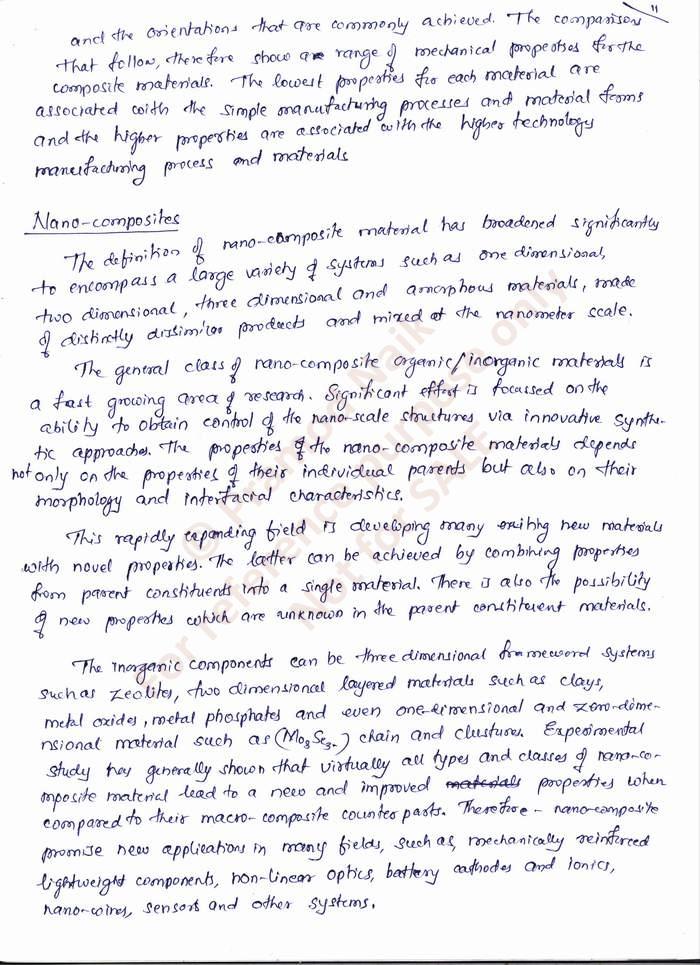 11
and the orientations that are commonly achieved. The comparison
that follow, therefore show a range of mechanical properties for the
composite materials. The lowest properties for each material are
associated with the simple manufacturing processes and material forms
and the higher properties are associated with the higher technology
manufacturing process and materials
Nano-composites
The definition of nano-composite material has broadened significantly
to encompass a large variety of systems such as one dimensional,
two dimensional, three dimensional and amorphous materials, made
of distinctly dissimilar products and mixed at the nanometer scale.
The general class of nano-composite organic/inorganic materials is
a fast growing area of research. Significant effort is focussed on the
ability to obtain control of the nano-scale structures via innovative synthe-
tic approaches. The properties of the nano-composite materials depends
not only on the properties of their individual parents but also on their
morphology and interfacial characteristics.
This rapidly expanding field is developing many exiting new materials
with novel properties. The latter can be achieved by combining properties
from parent constituents into a single material. There is also the possibility
of new properties which are unknown in the parent constituent materials.
The inorganic components can be three dimensional frameword systems
such as zeolites, two dimensional layered materials such as clays,
metal oxides, metal phosphates and even one-dimensional and zero-dime-
nsional material such as (Mo3Se3-) chain and clusture. Experimental
study has generally shown that virtually all types and classes of nano-co-
mposite material lead to a new and improved materials properties when
compared to their macro-composite counter parts. Therefore - nano-composite
promise new applications in many fields, such as, mechanically reinforced
lightweight components, non-linear optics, battery cathodes and ionics,
nano-wires, sensors and other systems.
© Pramod Naik
For reference purpose only
Not for SALE